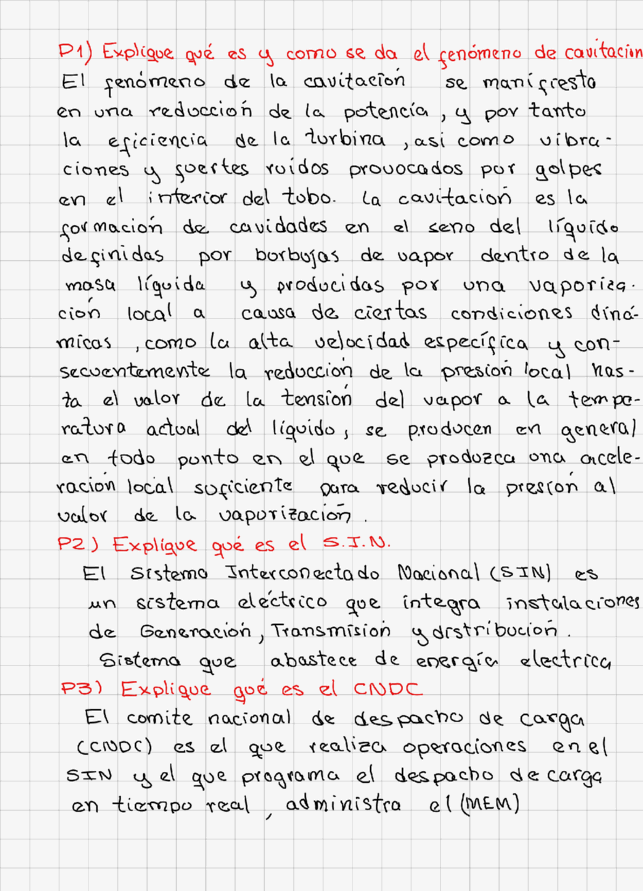 P1) Explique qué es y como se da el fenómeno de cavitacion
El fenómeno de la cavitación se manifiesta
en una reducción de la potencia, y por tanto
la eficiencia de la turbina, asi como vibra-
ciones y fuertes ruidos provocados por golpes
en el interior del tubo. La cavitación es la
formación de cavidades en el seno del líquido
definidas por borbujas de vapor dentro de la
masa líquida y producidas por una vaporiza-
ción local a causa de ciertas condiciones diná-
micas, como la alta velocidad específica y con-
secuentemente la reducción de la presión local has-
ta el valor de la tensión del vapor a la tempe-
ratura actual del líquido, se producen en general
en todo punto en el que se produzca una acele-
ración local suficiente para reducir la presión al
valor de la vaporización.
P2) Explique qué es el S.I.N.
El Sistema Interconectado Nacional (SIN) es
un sistema eléctrico que integra instalaciones
de Generación, Transmisión y distribución.
Sistema que abastece de energía electrica
P3) Explique qué es el CNDC
El comite nacional de despacho de carga
(CNDC) es el que realiza operaciones en el
SIN y el que programa el despacho de carga
en tiempo real, administra el (MEM)